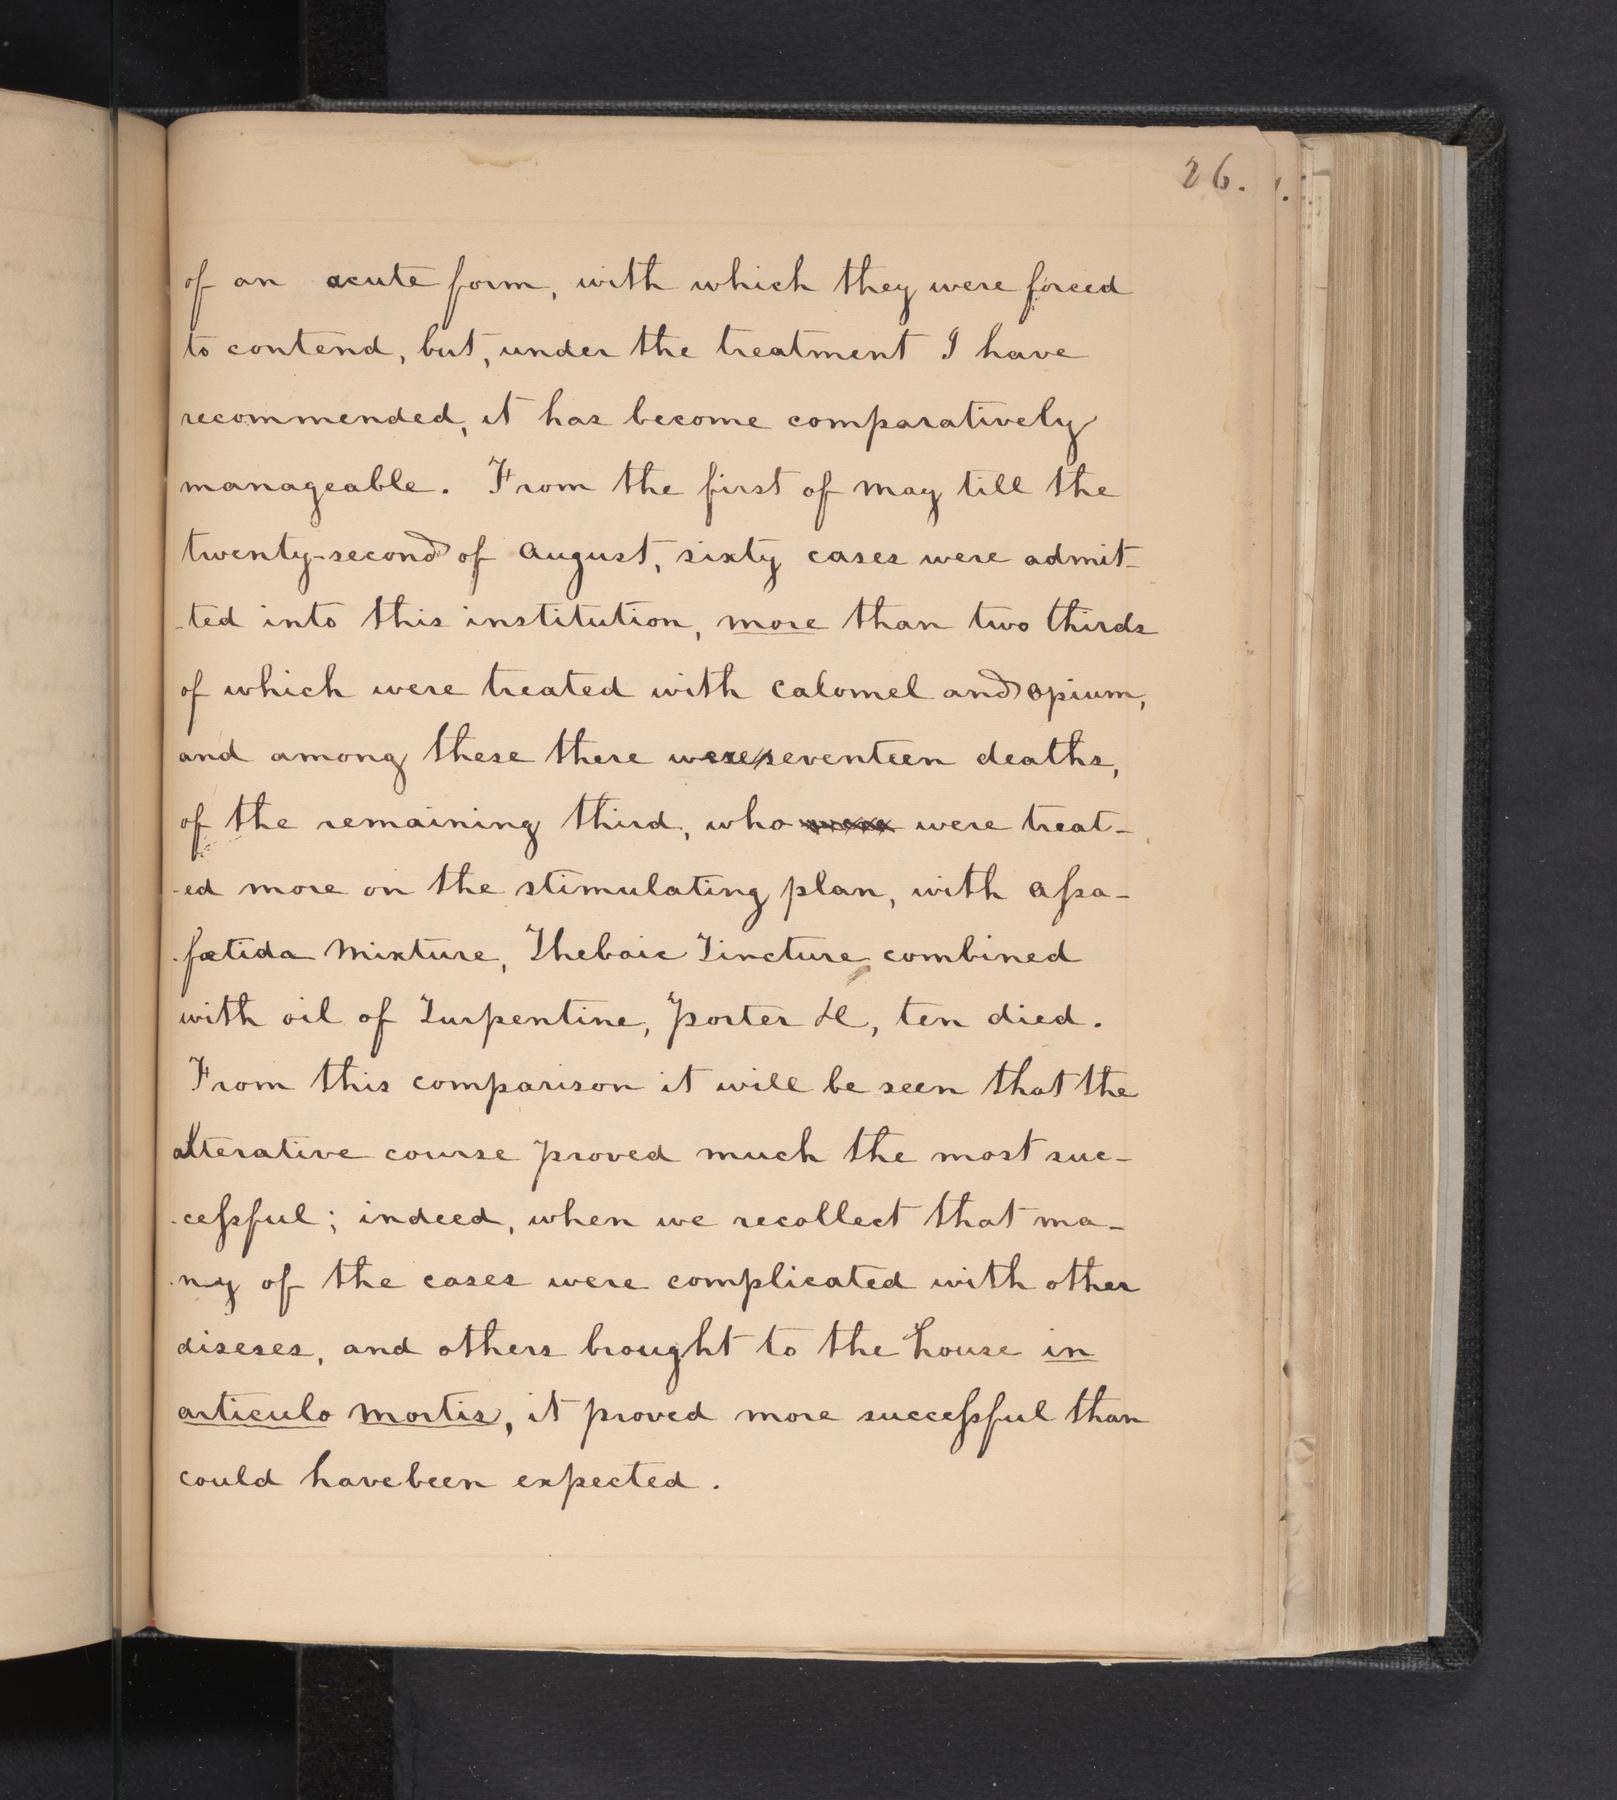 26.
of an acute form, with which they were forced
to contend, but, under the treatment I have
recommended, it has become comparatively
manageable. From the first of May till the
twenty-second of August, sixty cases were admit-
-ted into this institution, more than two thirds
of which were treated with calomel and opium,
and among these there were seventeen deaths,
of the remaining third, who were were treat-
-ed more on the stimulating plan, with assa-
-fœtida Mixture, Thebaic Tincture combined
with oil of Turpentine, Porter &c, ten died.
From this comparison it will be seen that the
alterative course proved much the most suc-
-cessful; indeed, when we recollect that ma-
-ny of the cases were complicated with other
diseses, and others brought to the house in
articulo mortis, it proved more successful than
could have been expected.